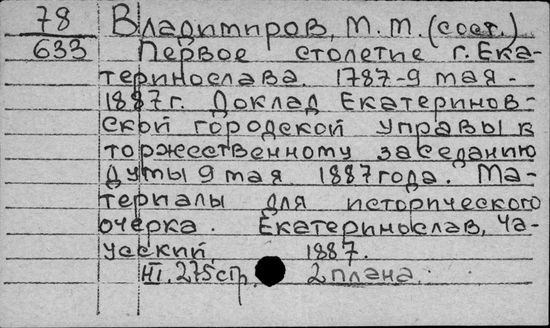 78
633
Владимиров, М. М. (сост.)
Первое столетие г. Ека-
теринослава. 1787-9 мая-
1887 г. Доклад Екатеринов-
ской городской управы к
торжественному заседанию
Думы 9 мая 1887 года. Ма-
териалы для исторического
очерка. Екатеринослав, Ча-
усский, 1887.
III. 275 стр. 2 плана.